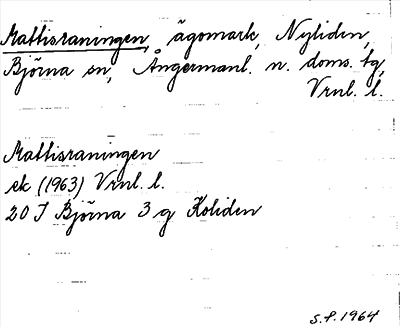 Mattisraningen, ägomark, Nyliden,
Björna sn, Ångermanl. n. doms. tg,
Vrnl. l.
Mattisraningen
ek (1963) Vrnl. l.
20 I Björna 3 g Koliden
S.P. 1964